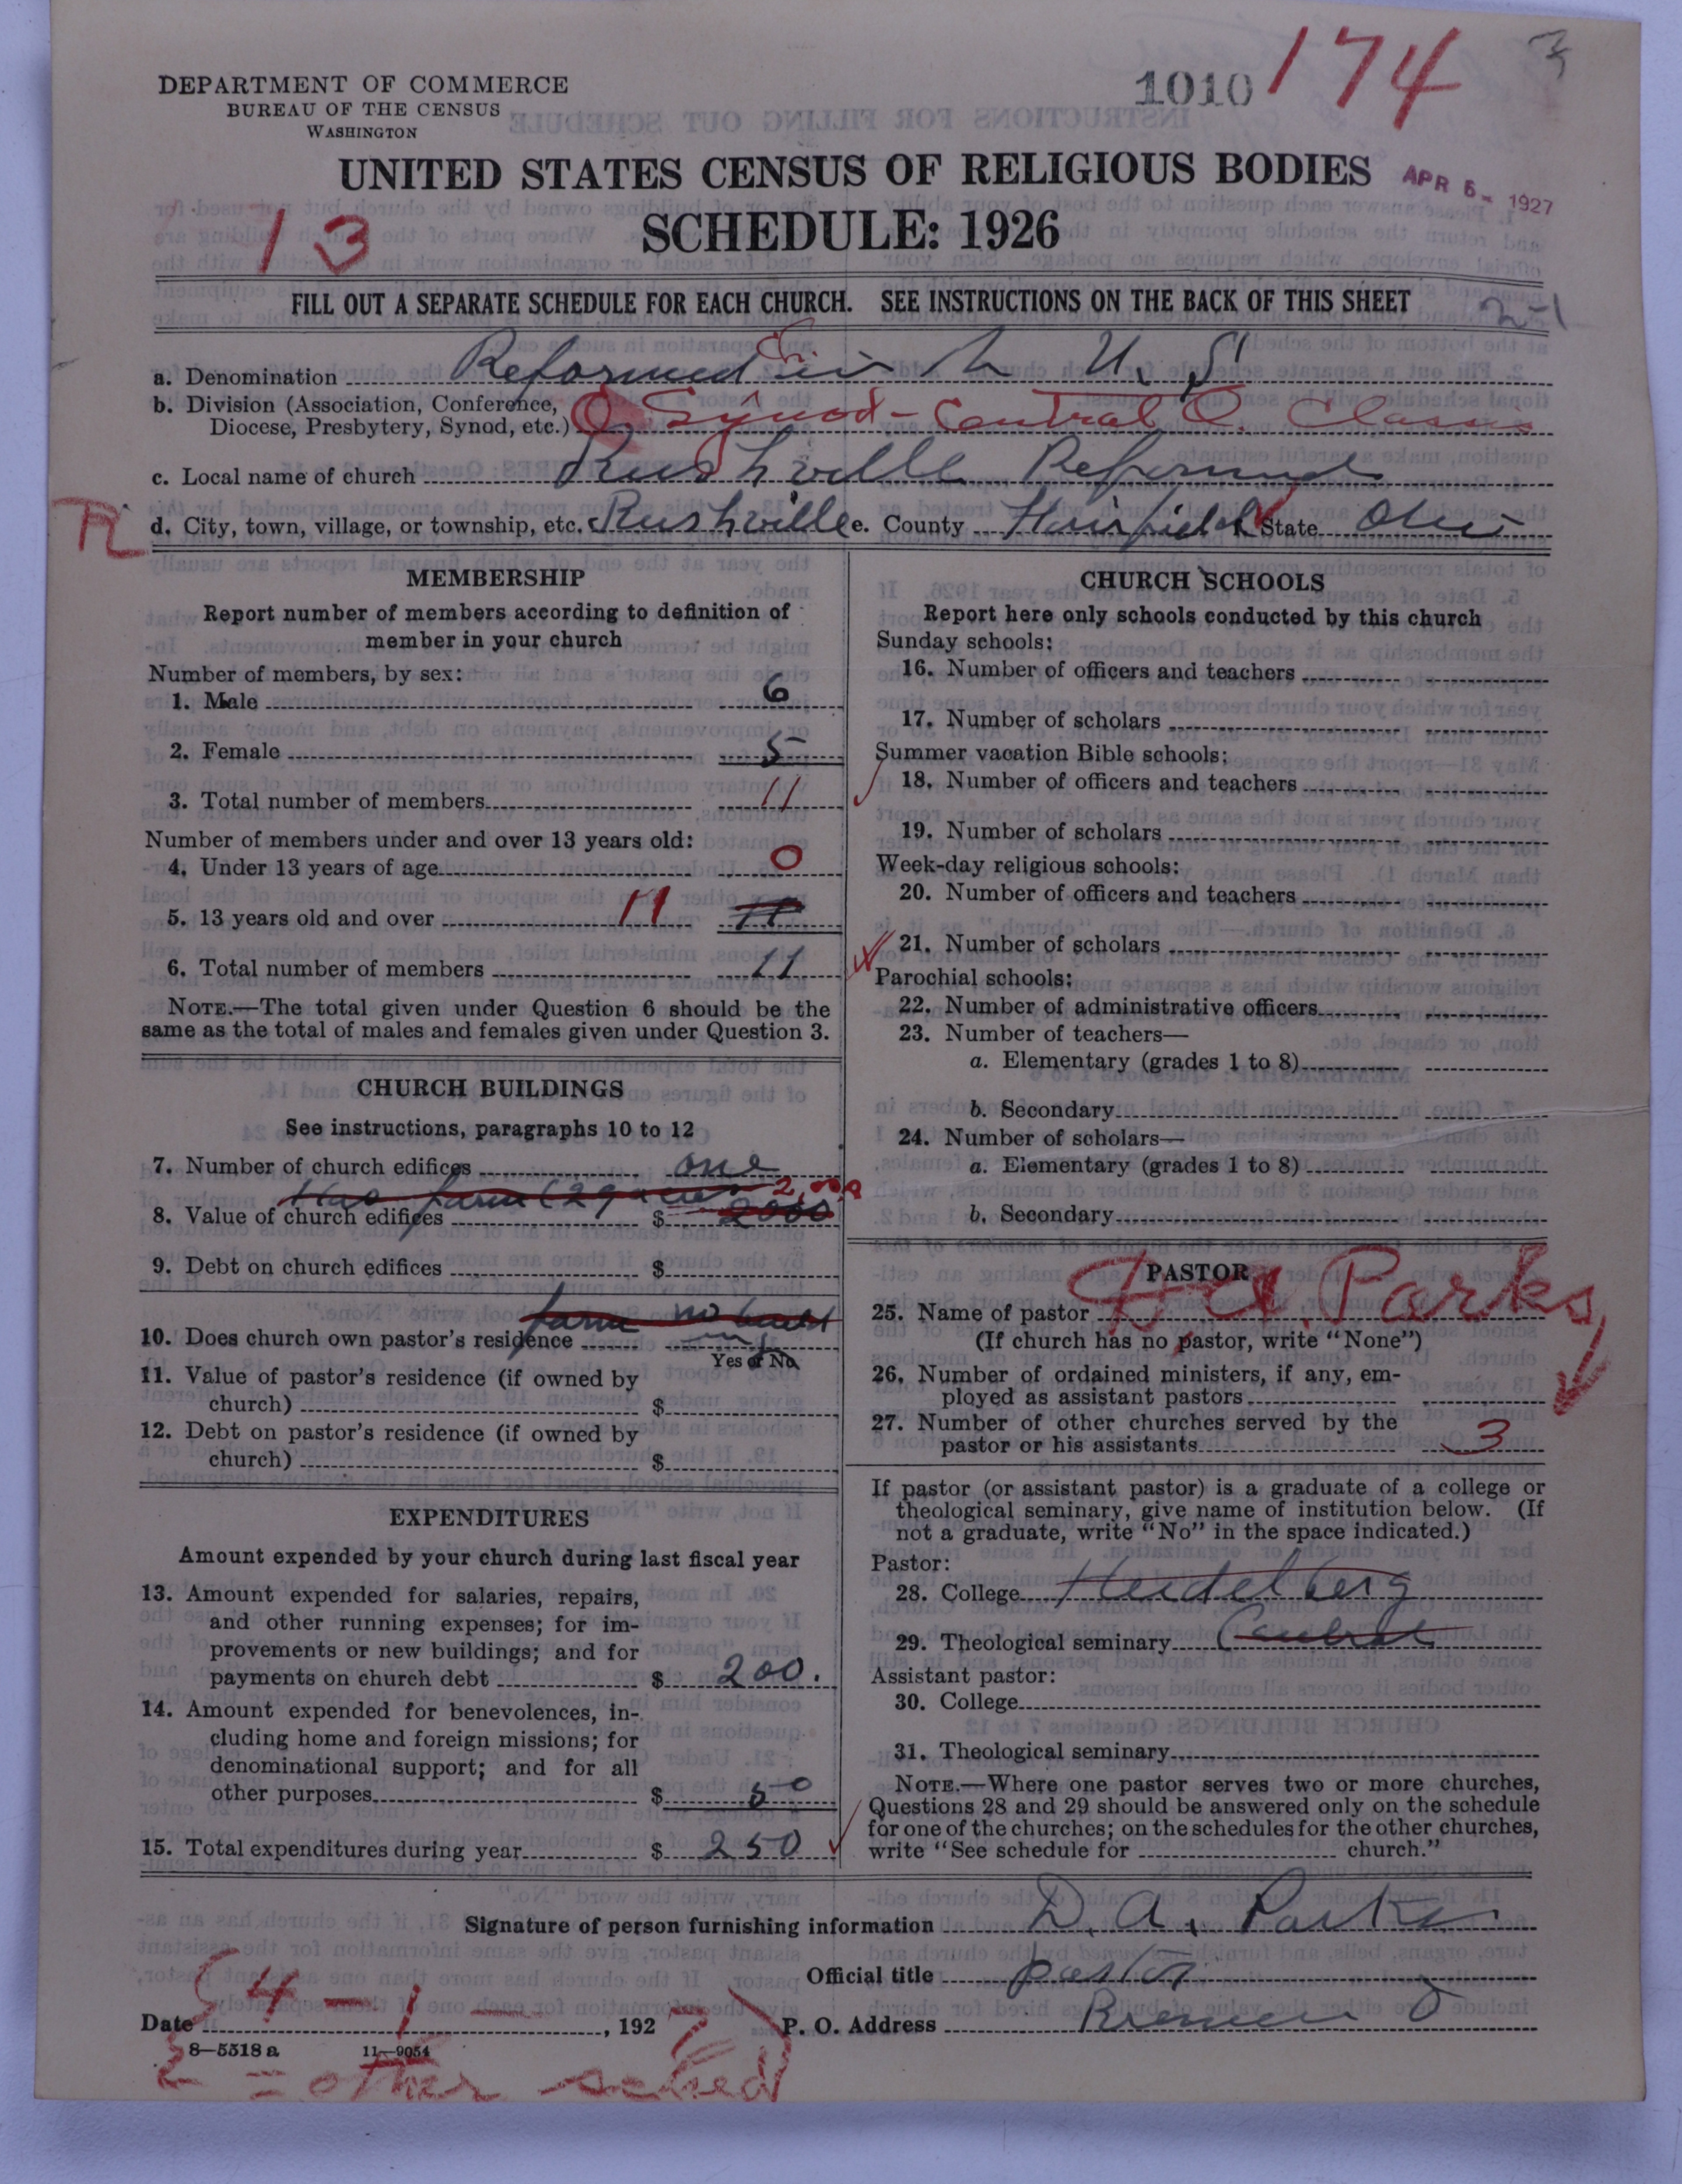 1010 174 3
DEPARTMENT OF COMMERCE
BUREAU OF THE CENSUS
WASHINGTON
UNITED STATES CENSUS OF RELIGIOUS BODIES
APR 5 - 1927
SCHEDULE: 1926
13
FILL OUT A SEPARATE SCHEDULE FOR EACH CHURCH. SEE INSTRUCTIONS ON THE BACK OF THIS SHEET
2-1
a. Denomination Reformed Ch in U. S
b. Division (Association, Conference,
Diocese, Presbytery, Synod, etc.) O Synod - Central O. Classis
c. Local name of church Rushville Reformed
d. City, town, village, or township, etc. Rushville e. County Fairfield State Ohio
MEMBERSHIP
Report number of members according to definition of
member in your church
Number of members, by sex:
1. Male 6
2. Female 5
3. Total number of members 11
Number of members under and over 13 years old:
4. Under 13 years of age 0
5. 13 years old and over 11 11
6. Total number of members 11
NOTE.—The total given under Question 6 should be the
same as the total of males and females given under Question 3.
CHURCH BUILDINGS
See instructions, paragraphs 10 to 12
7. Number of church edifices one
Has farm (29 acres 2,000
8. Value of church edifices $ 2000
9. Debt on church edifices $
farm no
10. Does church own pastor's residence
Yes or No
11. Value of pastor's residence (if owned by
church) $
12. Debt on pastor's residence (if owned by
church) $
EXPENDITURES
Amount expended by your church during last fiscal year
13. Amount expended for salaries, repairs,
and other running expenses; for im-
provements or new buildings; and for
payments on church debt $ 200.
14. Amount expended for benevolences, in-
cluding home and foreign missions; for
denominational support; and for all
other purposes $ 50
15. Total expenditures during year $ 250
CHURCH SCHOOLS
Report here only schools conducted by this church
Sunday schools:
16. Number of officers and teachers
17. Number of scholars
Summer vacation Bible schools:
18. Number of officers and teachers
19. Number of scholars
Week-day religious schools:
20. Number of officers and teachers
21. Number of scholars
Parochial schools:
22. Number of administrative officers
23. Number of teachers—
a. Elementary (grades 1 to 8)
b. Secondary
24. Number of scholars—
a. Elementary (grades 1 to 8)
b. Secondary
PASTOR
25. Name of pastor D. A. Parks
(If church has no pastor, write "None")
26. Number of ordained ministers, if any, em-
ployed as assistant pastors
27. Number of other churches served by the
pastor or his assistants 3
If pastor (or assistant pastor) is a graduate of a college or
theological seminary, give name of institution below. (If
not a graduate, write "No" in the space indicated.)
Pastor:
28. College Heidelberg
29. Theological seminary Central
Assistant pastor:
30. College
31. Theological seminary
NOTE.—Where one pastor serves two or more churches,
Questions 28 and 29 should be answered only on the schedule
for one of the churches; on the schedules for the other churches,
write "See schedule for church."
Signature of person furnishing information D. A. Parks
Official title pastor
Date 4 - 1 - , 1927 P. O. Address Bremen O
8—5518 a 11—9054
= other sched